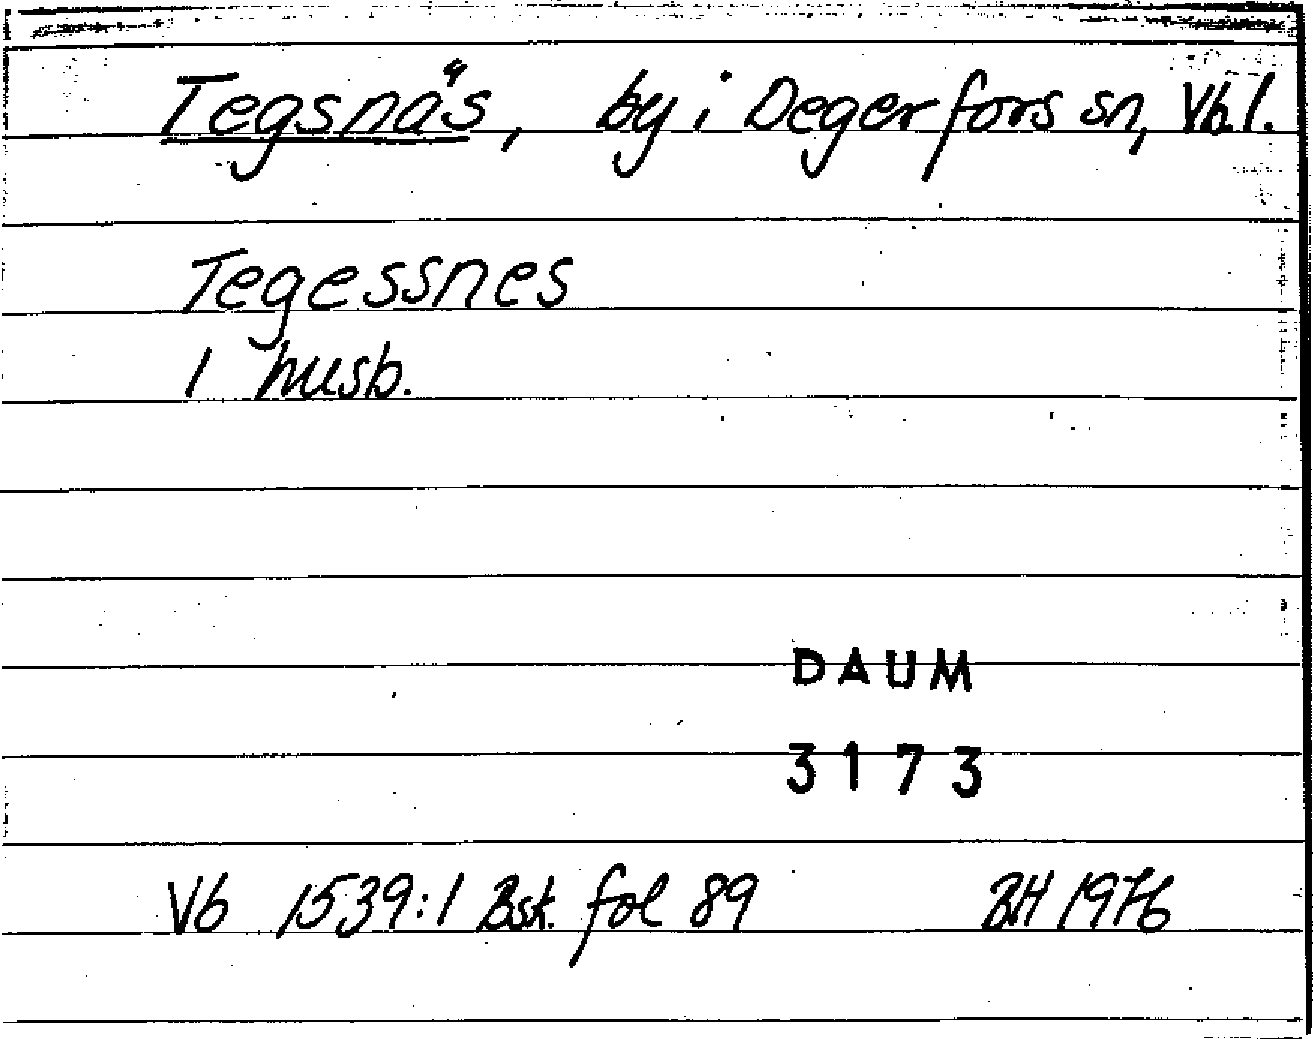 Tegsnäs, by i Degerfors sn, Vb.l.
Tegessnes
1 husb.
DAUM
3173
Vb 1539:1 Bsk. fol 89 BH 1976